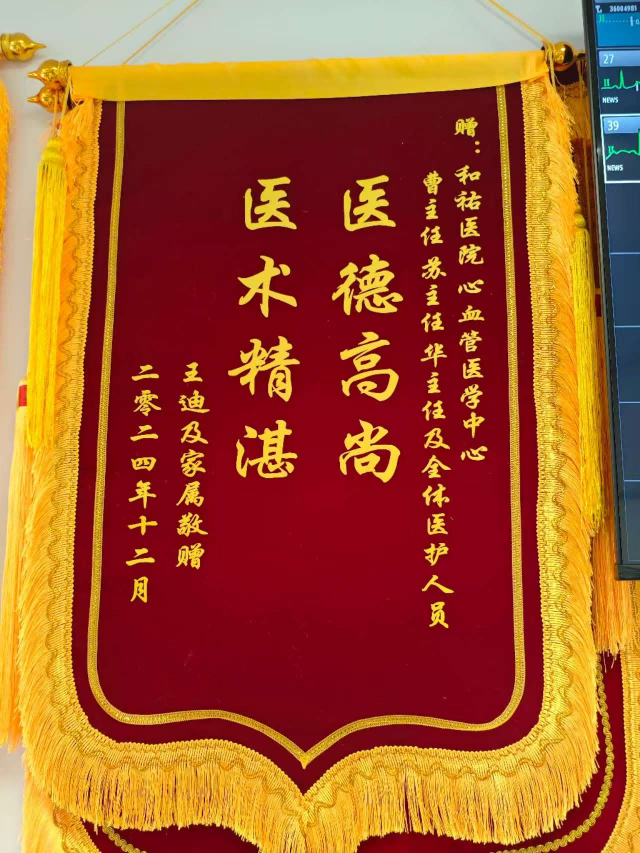 赠：和祐医院心血管医学中心
曹主任苏主任华主任及全体医护人员
医德高尚
医术精湛
王迪及家属敬赠
二零二四年十二月
36004981
27
NEWS
39
NEWS